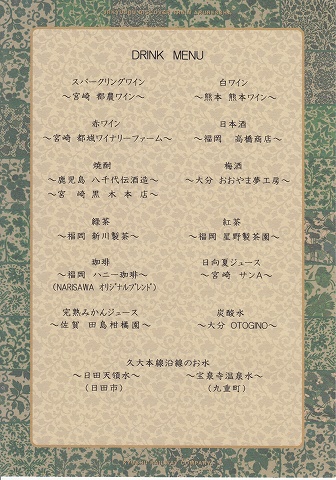 DRINK MENU
スパークリングワイン
～宮崎 都農ワイン～
白ワイン
～熊本 熊本ワイン～
赤ワイン
～宮崎 都城ワイナリーファーム～
日本酒
～福岡 高橋商店～
焼酎
～鹿児島 八千代伝酒造～
～宮崎 黒木本店～
梅酒
～大分 おおやま夢工房～
緑茶
～福岡 新川製茶～
紅茶
～福岡 星野製茶園～
珈琲
～福岡 ハニー珈琲～
(NARISAWA オリジナルブレンド)
日向夏ジュース
～宮崎 サンA～
完熟みかんジュース
～佐賀 田島柑橘園～
炭酸水
～大分 OTOGINO～
久大本線沿線のお水
～日田天領水～
(日田市)
～宝泉寺温泉水～
(九重町)